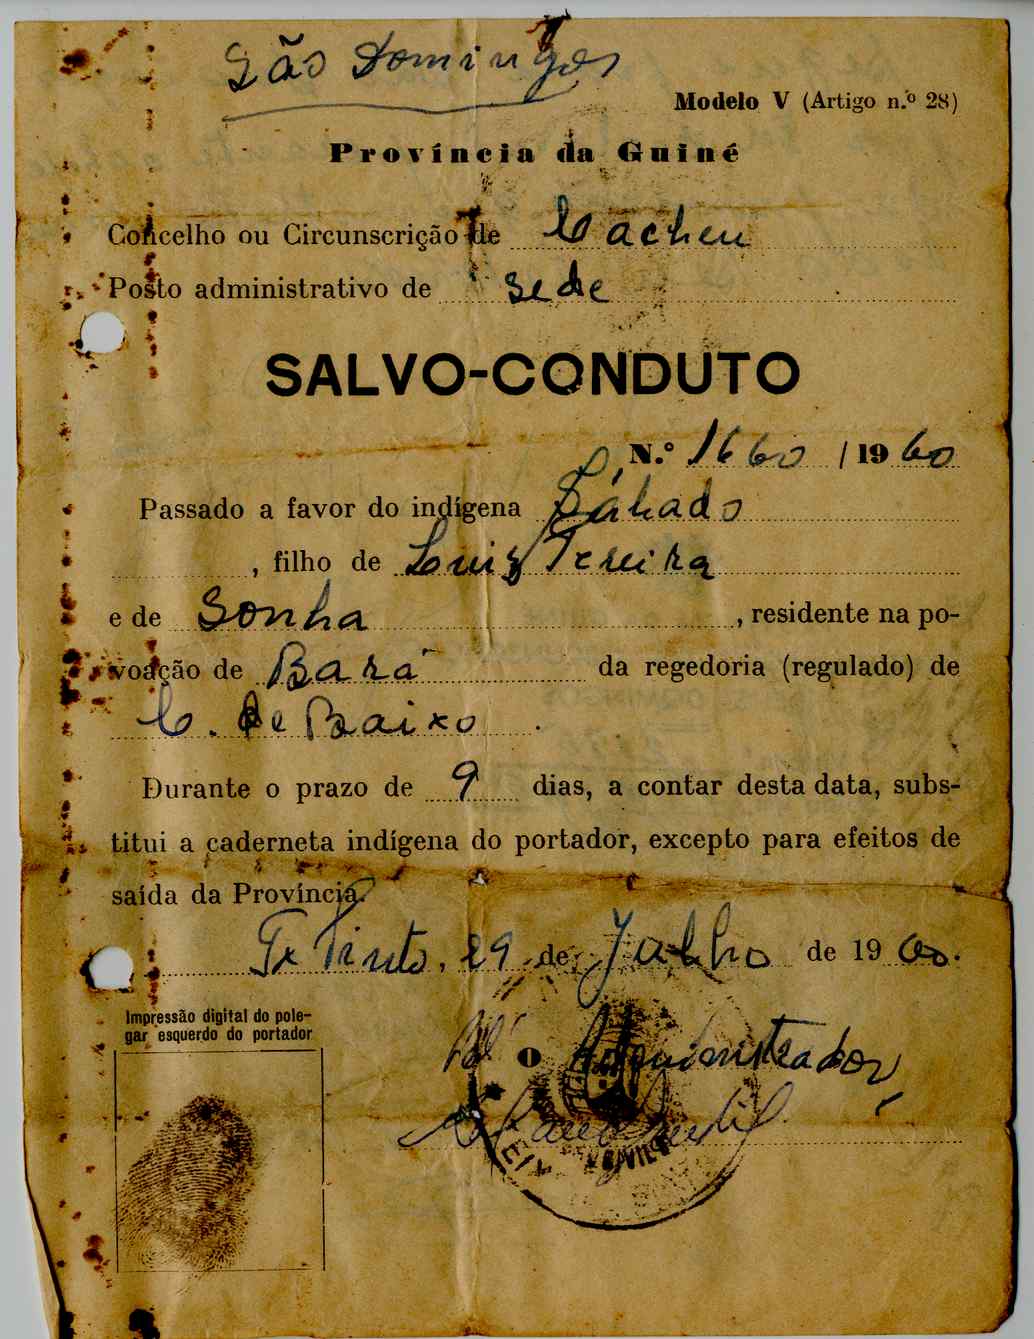 São Domingos
Modelo V (Artigo n.º 28)
Província da Guiné
Concelho ou Circunscrição de Cacheu
Posto administrativo de sede
SALVO-CONDUTO
N.º 1660 / 1960
Passado a favor do indígena Sábado
, filho de Luiz Pereira
e de Sonha, residente na po-
voação de Bará da regedoria (regulado) de
C. de Baixo.
Durante o prazo de 9 dias, a contar desta data, subs-
titui a caderneta indígena do portador, excepto para efeitos de
saída da Província.
Tx Pinto, 29 de Julho de 1960.
Impressão digital do pole-
gar esquerdo do portador
O Administrador,